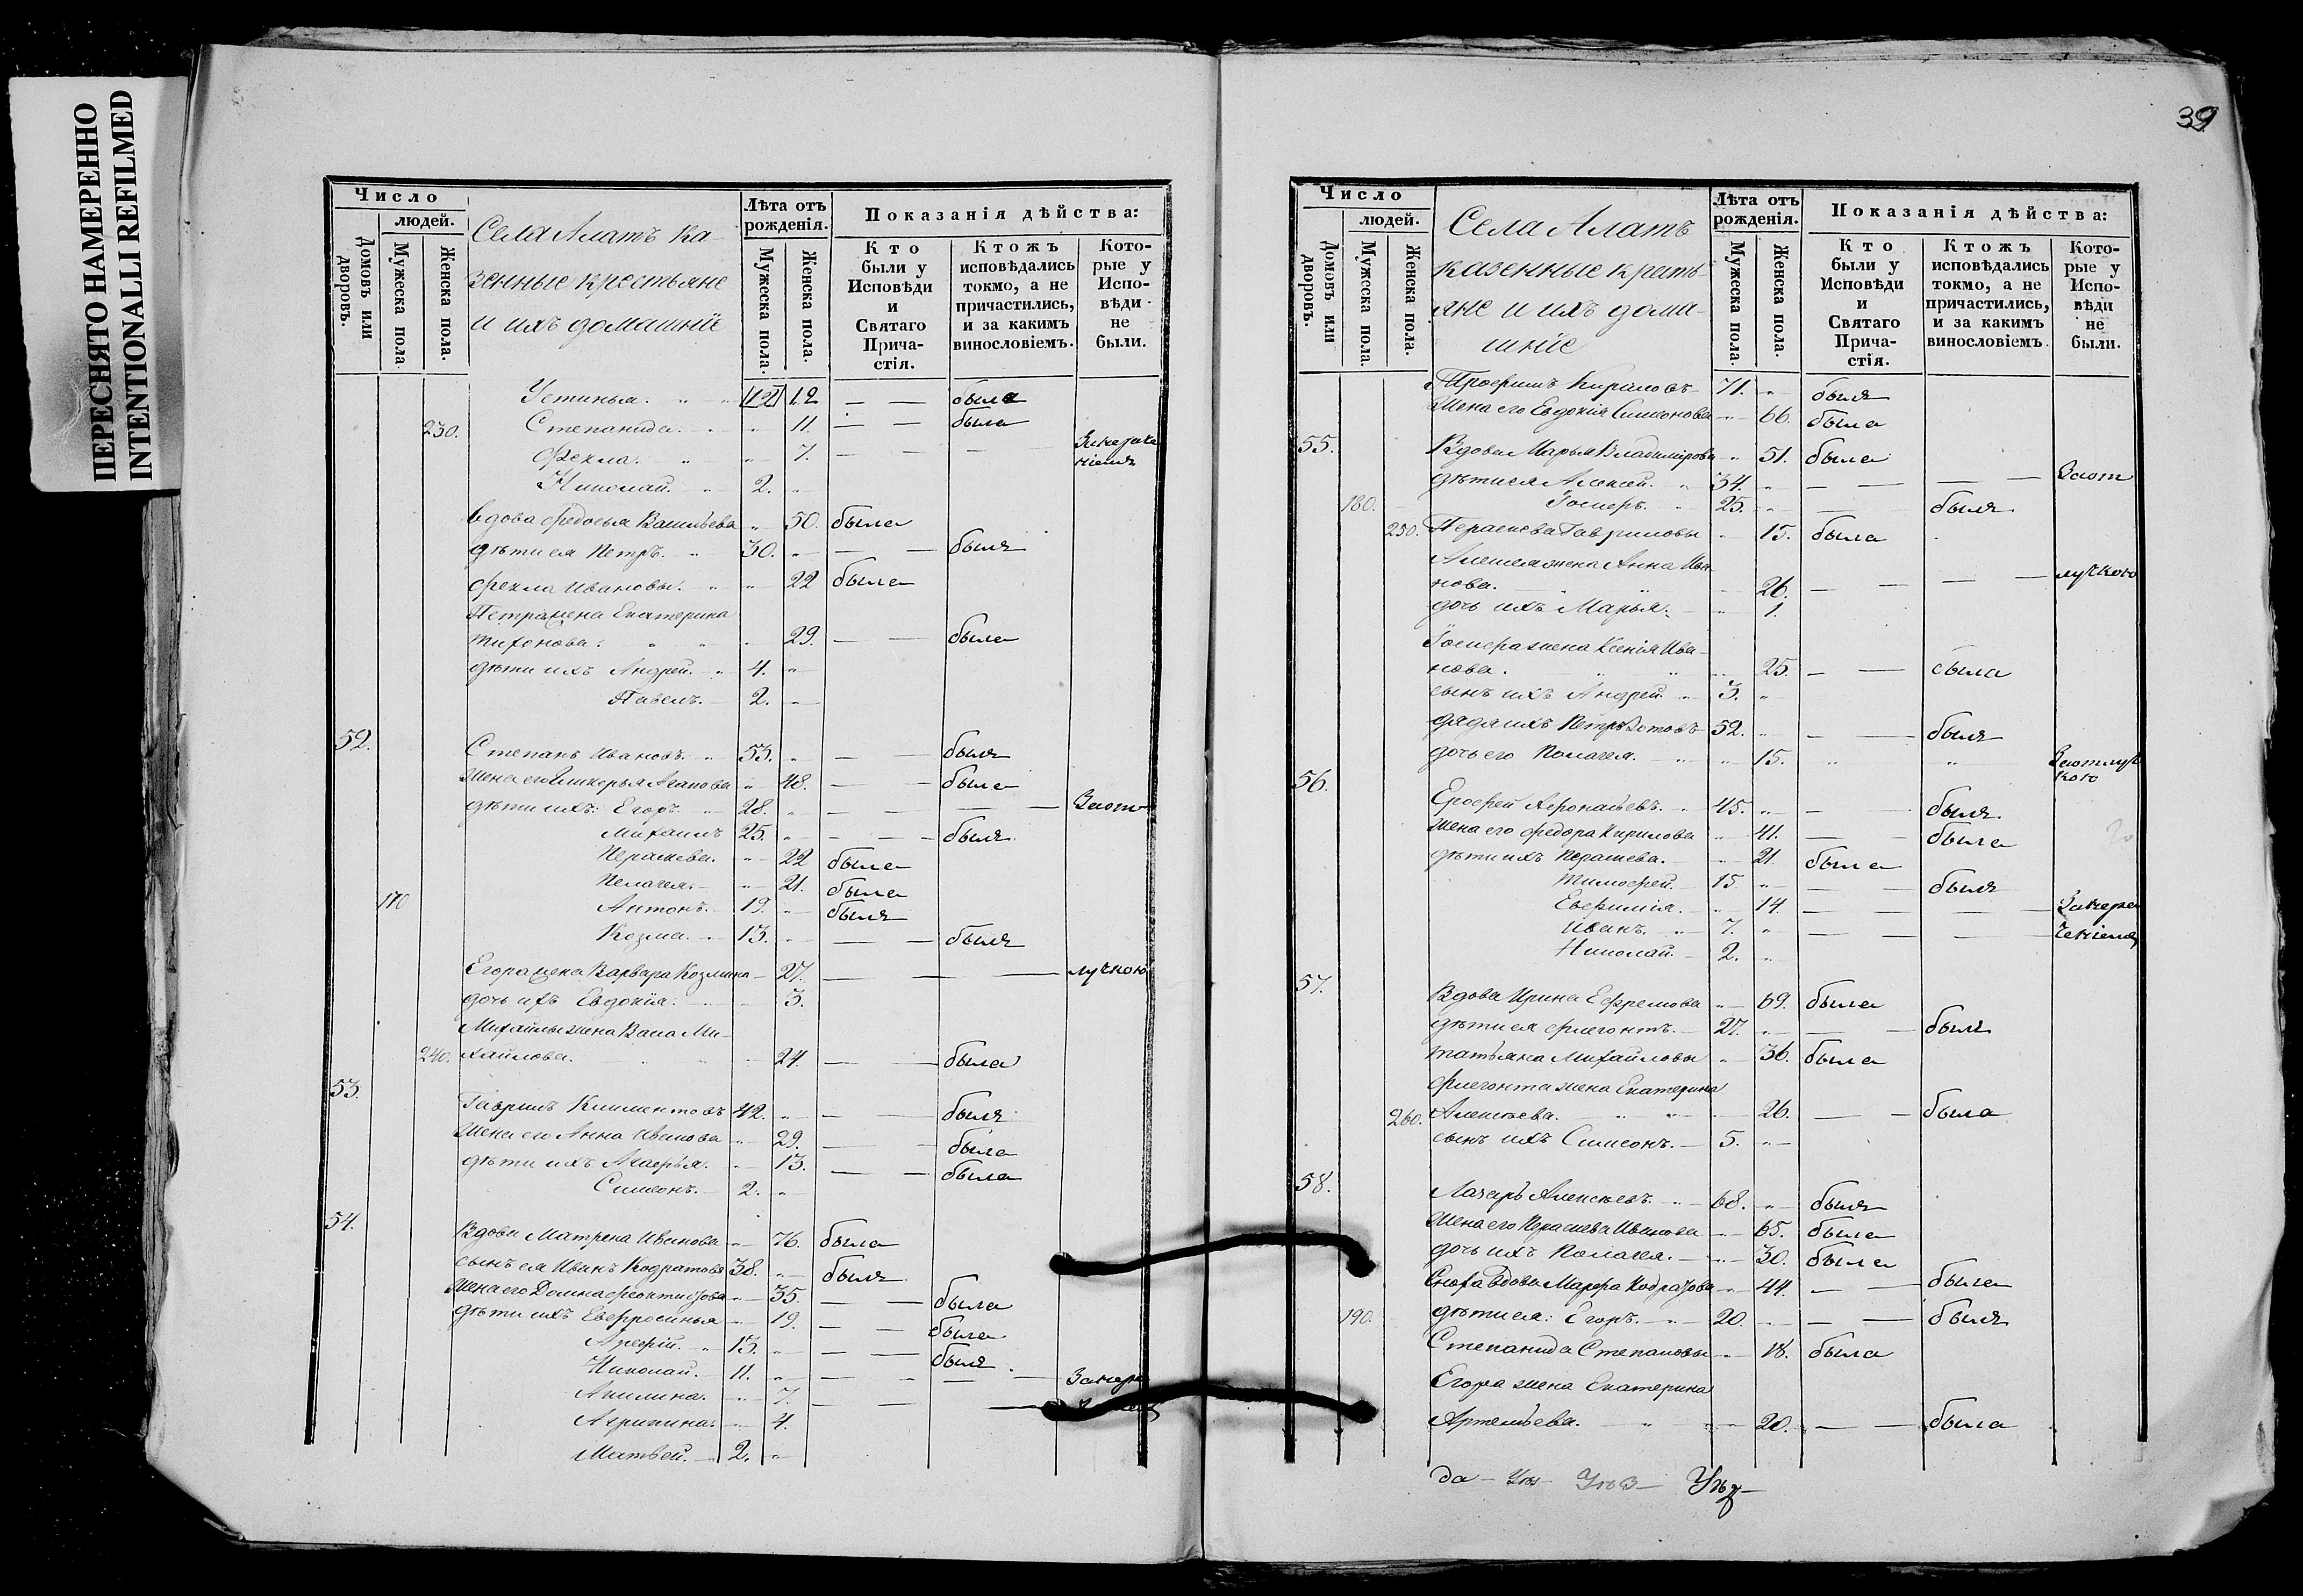 ПЕРЕСНЯТО НАМЕРЕННО
INTENTIONALLI REFILMED
Число
людей.
Домовъ или дворовъ.
Мужеска пола.
Женска пола.
Села Алатъ ка-
зенные крестьяне
и ихъ домашніе
Лѣта отъ рожденія.
Мужеска пола.
Женска пола.
Показанія дѣйства:
Кто были у Исповѣди и Святаго Прича-стія.
Ктожъ исповѣдались токмо, а не причастились, и за какимъ винословіемъ.
Кото-рые у Испо-вѣди не были.
Устинья. 12 12 — — была
230. Степанида. 11. — — была
Фекла. 7. — — —
Николай. 2.
вдова Федосья Васильева 50. была
дѣти ея Петръ. 30. — — былъ
Фекла Ивановы. 22 была
Петра жена Екатерина
Тихонова. 29. — — была
дѣти ихъ Андрей. 4.
Павелъ. 2.
52.
Степанъ Ивановъ. 53. — — былъ
жена его Гликерья 48. — — была
дѣти ихъ: Егоръ. 28. — — —
Михаилъ 25. — — былъ
Парасковья. 22 была
Пелагея. 21. была
170 Антонъ. 19. былъ
Козма. 13. — — былъ
Егора жена Варвара Козмина 27. — — —
дочь ихъ Евдокія. 3.
Михайлы жена Васса Ми-
240. хайлова. 24. — — была
53.
Гавріилъ Климентовъ 42. — — былъ
жена его Анна Иванова 29. — — была
дѣти ихъ Агафья. 13. — — была
Симеонъ. 2.
54.
Вдова Матрена Иванова 76. была
сынъ ея Иванъ Кодратовъ 38. былъ
жена его Домна 35. — — была
дѣти ихъ Евфросинья 19. — — была
Арефій. 13. — — былъ
Николай. 11. — — —
Акилина. 7. — — —
Агрипина. 4.
Матвей. 2.
39
Число
людей.
Домовъ или дворовъ.
Мужеска пола.
Женска пола.
Села Алатъ
казенные кресть-
яне и ихъ дома-
шніе
Лѣта отъ рожденія.
Мужеска пола.
Женска пола.
Показанія дѣйства:
Кто были у Исповѣди и Святаго Прича-стія.
Ктожъ исповѣдались токмо, а не причастились, и за какимъ винословіемъ.
Кото-рые у Испо-вѣди не были.
Трофимъ Кириловъ 71. былъ
Жена его Евдокія Симеонова 66. была
55.
Вдова Марья Владимірова 51. была
дѣти ея Алексей. 34. — — —
180. Іосифъ. 25. — былъ
250. Параскева Гавриловы 15. была
Алексея жена Анна Ива-
нова. 26. — — —
дочь ихъ Марья. 1.
Іосифа жена Ксенія Ива-
нова. 25. — — была
сынъ ихъ Андрей. 3.
дядя ихъ Петръ Зотовъ 52. — — былъ
дочь его Пелагея. 15.
56.
Ерофей Афонасьевъ. 45. — — былъ
жена его Федора Кирилова 41. — — была
дѣти ихъ Параскева. 21. была
Тимофей. 15. — — былъ
Евфимія. 14. — — —
Иванъ. 7. — — —
Николай. 2.
57.
Вдова Ирина Ефремова 69. была
дѣти ея Флегонтъ. 27. — — былъ
Татьяна Михайловы 36. была
Флегонта жена Екатерина
260. Алексеева. 26. — — была
сынъ ихъ Симеонъ. 5.
58.
Лазарь Алексеевъ. 68. былъ
жена его Параскева Иванова 65. была
дочь ихъ Пелагея. 30. была
Сноха вдова Марфа 44. — — была
190. дѣти ея: Егоръ. 20. — — былъ
Степанида Степановы 18. была
Егора жена Екатерина
Артемьева. 20. — — была